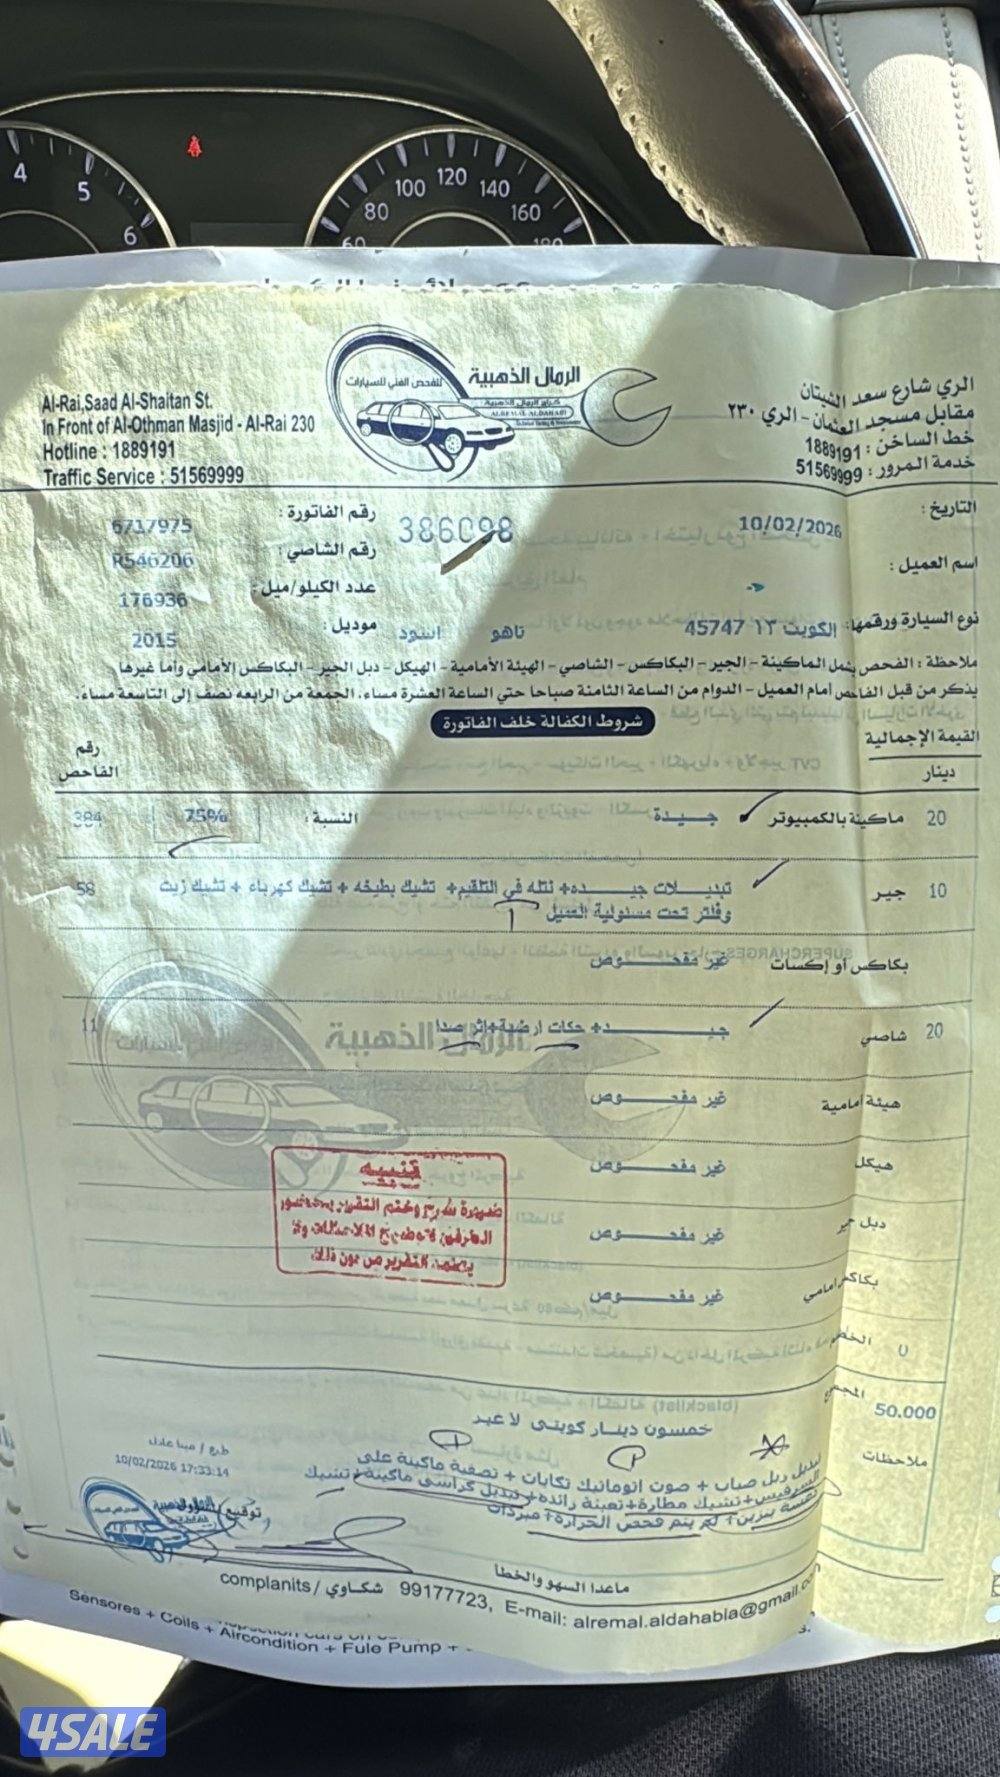 4
5
6
60
80
100
120
140
160
180
الرمال الذهبية
للفحص الفني للسيارات
كراج الرمال الذهبية
ALREMAL ALDAHABI
Al-Rai,Saad Al-Shaitan St.
In Front of Al-Othman Masjid - Al-Rai 230
Hotline : 1889191
Traffic Service : 51569999
الري شارع سعد الشيتان
مقابل مسجد العثمان - الري ٢٣٠
خط الساخن : 1889191
خدمة المرور : 51569999
التاريخ : 10/02/2026
386098
رقم الفاتورة : 6717975
اسم العميل :
رقم الشاصي : R546206
عدد الكيلو/ميل : 176936
نوع السيارة ورقمها: الكويت ١٣ 45747 تاهو اسود
موديل : 2015
ملاحظة : الفحص يشمل الماكينة - الجير - البكاكس - الشاصي - الهيئة الأمامية - الهيكل - دبل الجير - البكاكس الأمامي وأما غيرها
يذكر من قبل الفاحص أمام العميل - الدوام من الساعة الثامنة صباحا حتي الساعة العشرة مساء. الجمعة من الرابعة نصف إلى التاسعة مساء.
شروط الكفالة خلف الفاتورة
القيمة الإجمالية
دينار
رقم الفاحص
20 ماكينة بالكمبيوتر جيدة النسبة : 75% 384
10 جير تبديلات جيده+ نتله في التلقيم+ تشيك بطيخه + تشيك كهرباء + تشيك زيت 58
وفلتر تحت مسئولية العميل
بكاكس أو إكسات غير مفحوص
20 شاصي جيد+ حكات ارضية+اثر صدا 11
هيئة أمامية غير مفحوص
هيكل غير مفحوص
دبل جير غير مفحوص
بكاكس أمامي غير مفحوص
الخصم 0
المجموع 50.000
تنبيه
ضرورة شرح وختم التقرير بحضور
الطرفين لتوضيح الملاحظات ولا
يعتمد التقرير من دون ذلك
خمسون دينار كويتى لا غير
ملاحظات
تبديل ربل صباب + صوت اتوماتيك تكايات + تصفية ماكينة على
السرفيس+تشيك مطارة+تعينة رائده+تبديل كراسى ماكينة+تشيك
نفسة بنزين+ لم يتم فحص الحرارة+مبردات
طبع / مينا عادل
10/02/2026 17:33:14
توقيع المسؤول
ماعدا السهو والخطا
complanits / شكاوي 99177723, E-mail: alremal.aldahabia@gmail.com
Sensores + Coils + Aircondition + Fule Pump +
4SALE